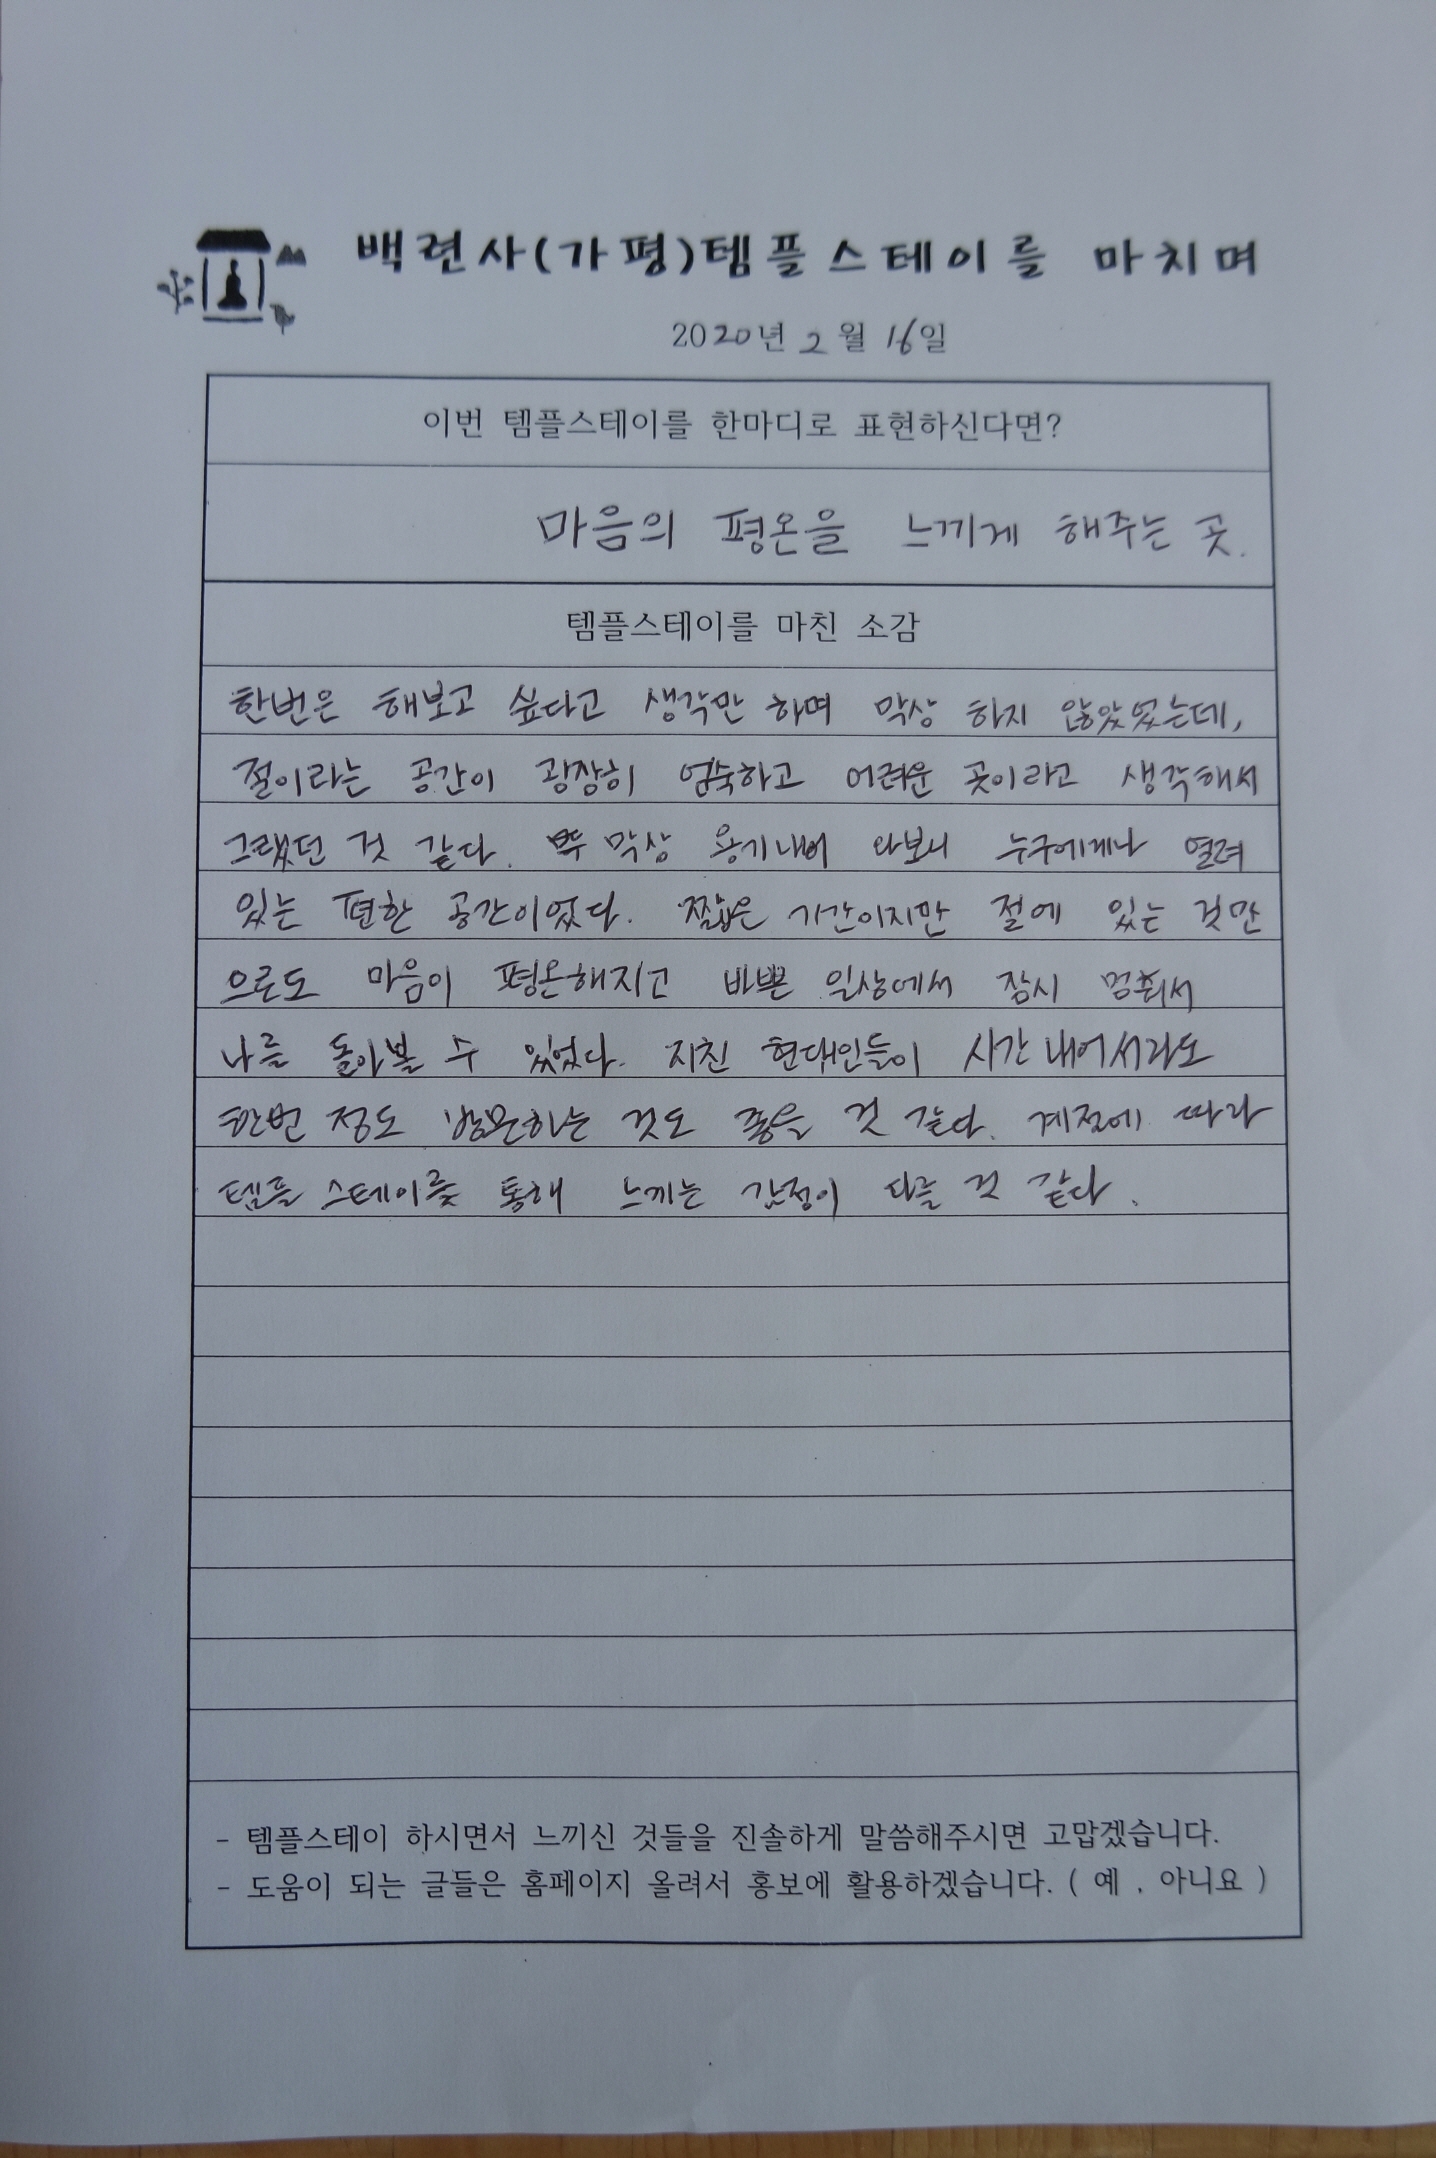 백련사(가평)템플스테이를 마치며
2020년 2월 16일
이번 템플스테이를 한마디로 표현하신다면?
마음의 평온을 느끼게 해주는 곳.
템플스테이를 마친 소감
한번은 해보고 싶다고 생각만 하며 막상 하지 않았었는데,
절이라는 공간이 굉장히 엄숙하고 어려운 곳이라고 생각해서
그랬던 것 같다. 막상 용기내어 와보니 누구에게나 열려
있는 편한 공간이었다. 짧은 기간이지만 절에 있는 것만
으로도 마음이 평온해지고 바쁜 일상에서 잠시 멈춰서
나를 돌아볼 수 있었다. 지친 현대인들이 시간내어서라도
한번 정도 방문하는 것도 좋을 것 같다. 계절에 따라
템플스테이를 통해 느끼는 감정이 다를 것 같다.
- 템플스테이 하시면서 느끼신 것들을 진솔하게 말씀해주시면 고맙겠습니다.
- 도움이 되는 글들은 홈페이지 올려서 홍보에 활용하겠습니다. ( 예 , 아니요 )